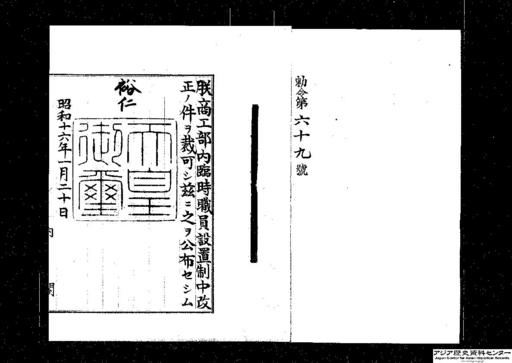 勅令第六十九號
朕商工部内臨時職員設置制中改
正ノ件ヲ裁可シ玆ニ之ヲ公布セシム
裕仁
天皇
御璽
昭和十六年一月二十日
内閣
アジア歴史資料センター
Japan Center for Asian Historical Records